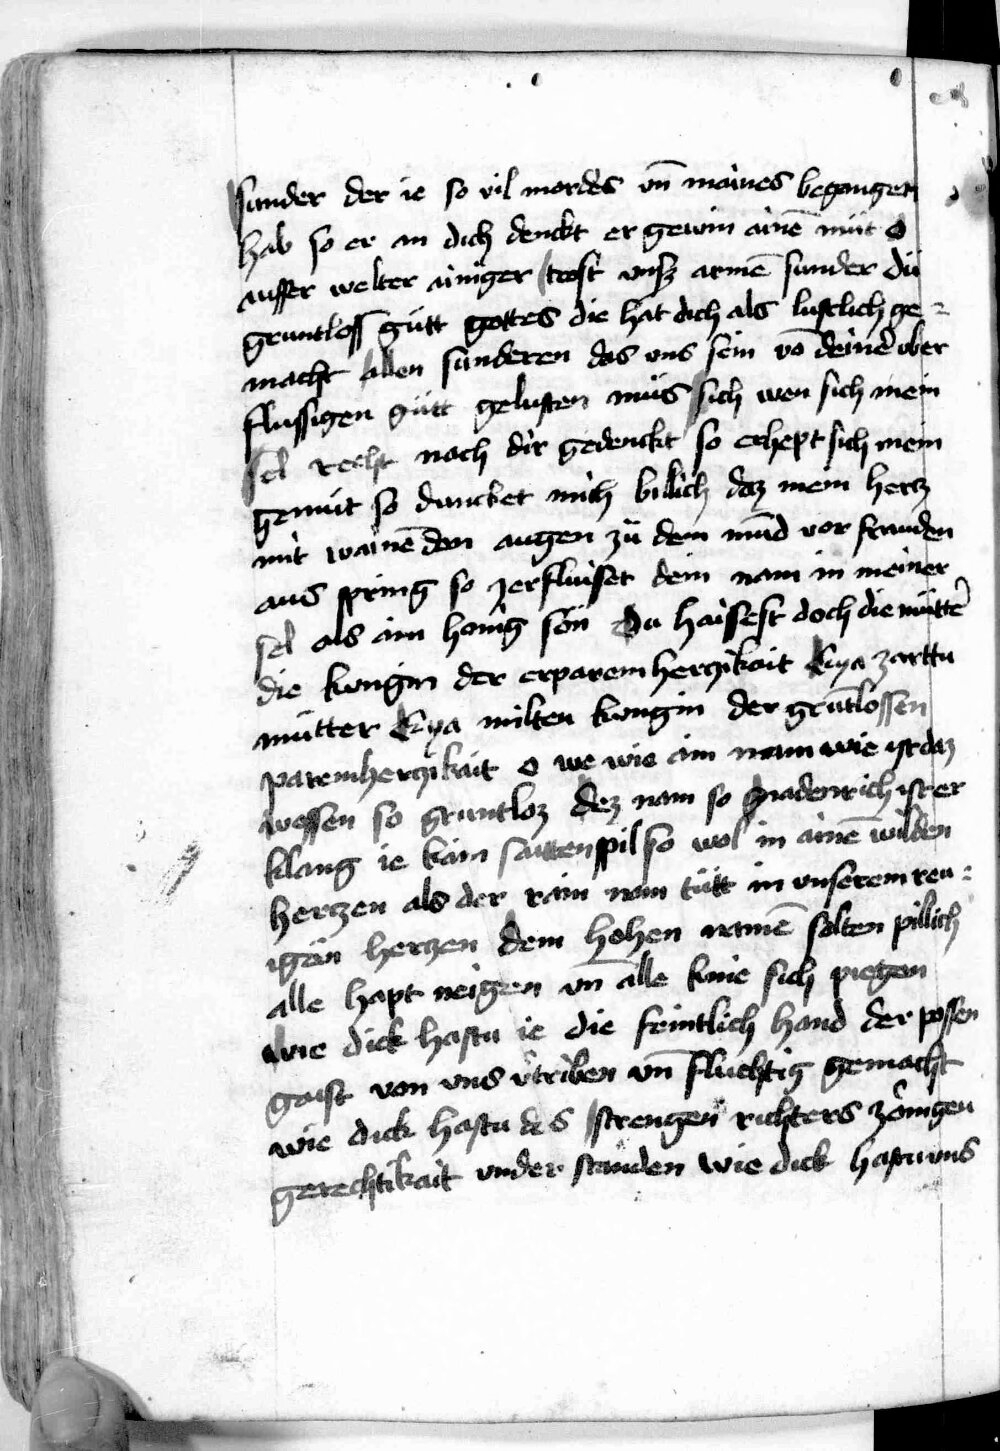 sunder der ie so vil mordes vn̄ maines begangen
hab so er an dich denckt er gewin ainē mut o
ausser welter ainiger trost vnsz armē sunder du
gruntloss gütt gottes die hat dich als lustlich ge=
macht allen sunderen das vns sein vō deinē vber
flussigen gütt gelusten müs sich wen sich mein
sel recht nach dir gedenckt so erhept sich mein
gemüt so duncket mich billich daz mein hertz
mit wainēden augen zü dem mūd vor frauden
aus spring so zerfluiset dein nam in meiner
sel als ain honig sön Du haissest doch die mütter
die kungin der erparemherczikait Eya zarttu
mütter Eya milten kungin der grūtlossen
paremherczikait o we wie ain nam wie ist daz
wessen so gruntloz dez nam so gnadenrich ist er
klang ie kain saittenspil so wol in ainē wilden
herczen als der rain nam tütt in vnserem reu=
igen herczen dem hohen namē solten pillich
alle hapt neigen vn̄ alle knie sich piegen
wie dick hastu ie die feintlich hand der possen
gaist von vns v̓triben vn̄ fluchtig gemacht
wie dick hastu des strengen richters zönigen
gerechtikait vnder standen wie dick hastu vns